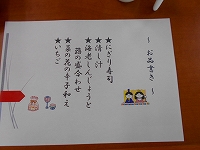 ～ お品書き ～
★にぎり寿司
★清し汁
★海老しんじょうと
鶏の盛合わせ
★菜の花の辛子和え
★いちご